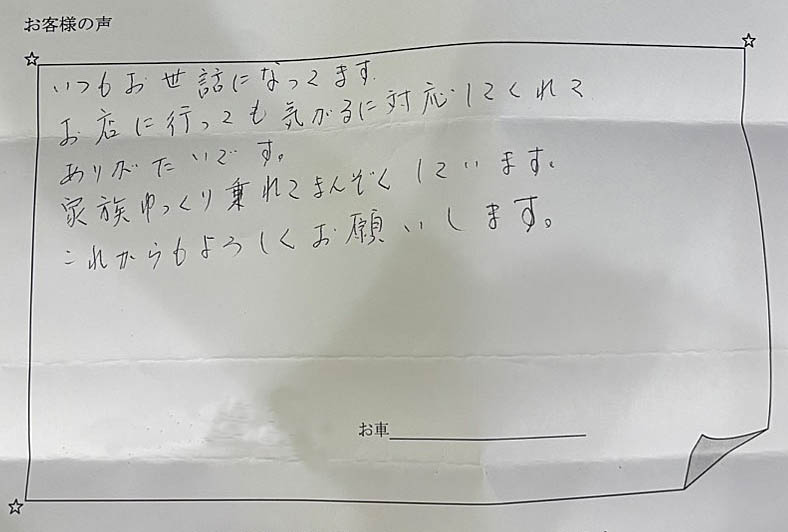 お客様の声
いつもお世話になってます.
お店に行っても気がるに対応してくれて
ありがたいです。
家族ゆっくり乗れてまんぞくしています。
これからもよろしくお願いします。
お車